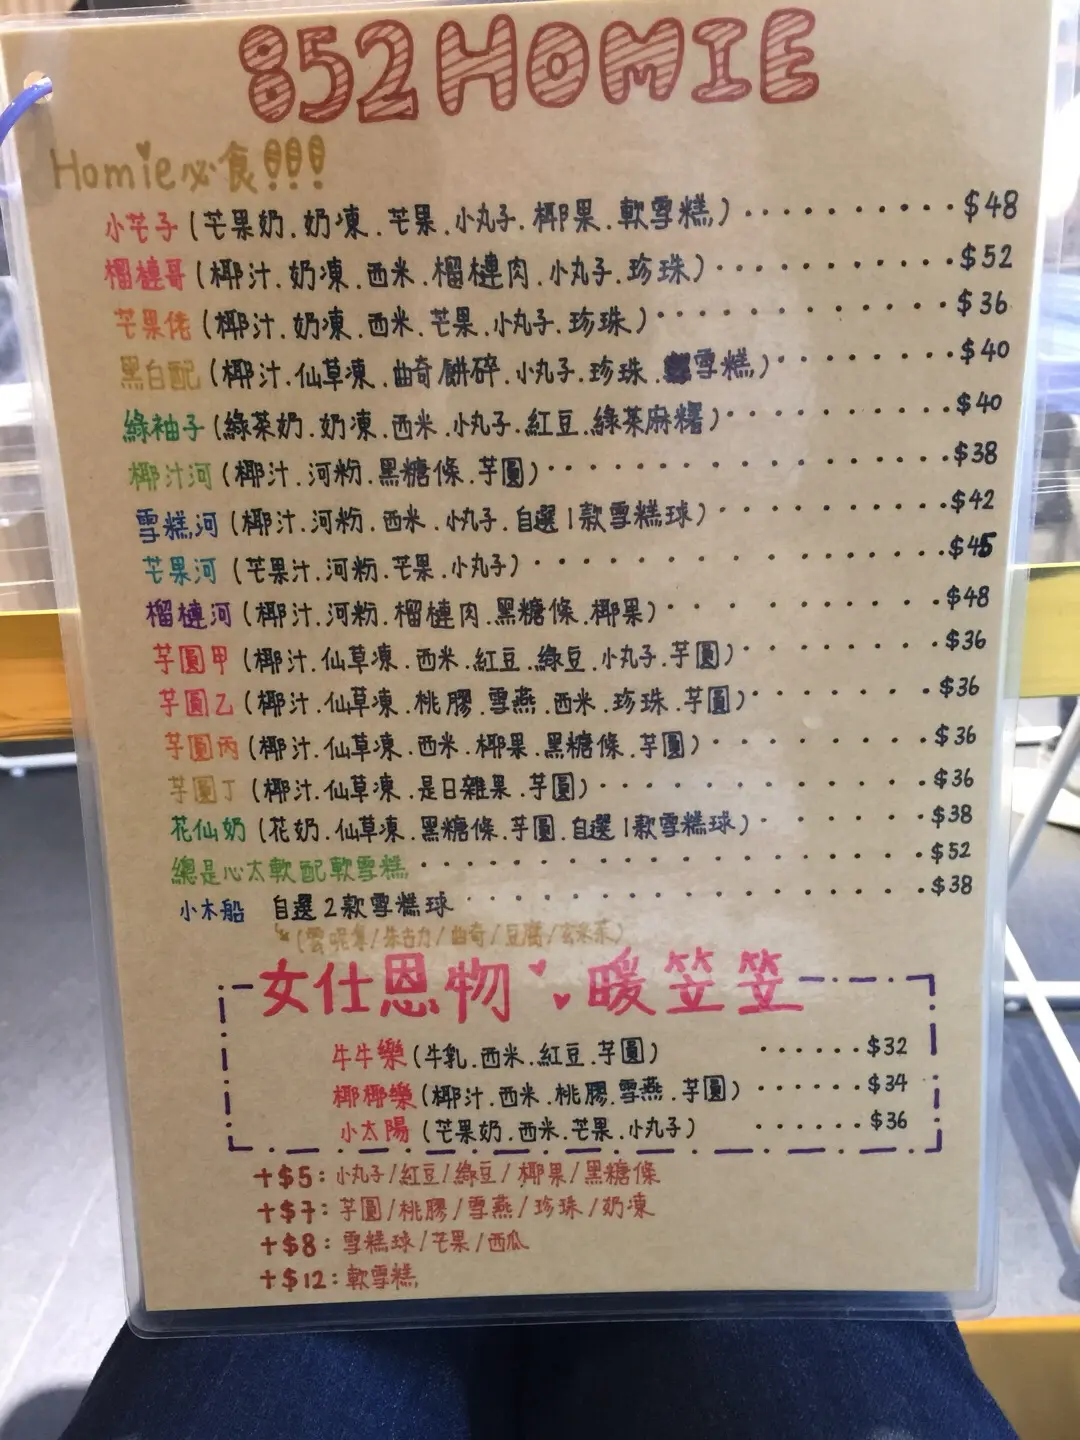 852HOMIE
Homie必食!!!
小芒子(芒果奶.奶凍.芒果.小丸子.椰果.軟雪糕)··········$48
榴槤哥(椰汁.奶凍.西米.榴槤肉.小丸子.珍珠)··········$52
芒果佬(椰汁.奶凍.西米.芒果.小丸子.珍珠)··········$36
黑白配(椰汁.仙草凍.曲奇餅碎.小丸子.珍珠.雪糕)··········$40
綠袖子(綠茶奶.奶凍.西米.小丸子.紅豆.綠茶麻糬)··········$40
椰汁河(椰汁.河粉.黑糖條.芋圓)··········$38
雪糕河(椰汁.河粉.西米.小丸子.自選1款雪糕球)··········$42
芒果河(芒果汁.河粉.芒果.小丸子)··········$45
榴槤河(椰汁.河粉.榴槤肉.黑糖條.椰果)··········$48
芋圓甲(椰汁.仙草凍.西米.紅豆.綠豆.小丸子.芋圓)··········$36
芋圓乙(椰汁.仙草凍.桃膠.雪燕.西米.珍珠.芋圓)··········$36
芋圓丙(椰汁.仙草凍.西米.椰果.黑糖條.芋圓)··········$36
芋圓丁(椰汁.仙草凍.是日雜果.芋圓)··········$36
花仙奶(花奶.仙草凍.黑糖條.芋圓.自選1款雪糕球)··········$38
總是心太軟配軟雪糕··········$52
小木船 自選2款雪糕球··········$38
(雲呢拿/朱古力/曲奇/豆腐/玄米茶)
女仕恩物 暖笠笠
牛牛樂(牛乳.西米.紅豆.芋圓) ······$32
椰椰樂(椰汁.西米.桃膠.雪燕.芋圓) ······$34
小太陽(芒果奶.西米.芒果.小丸子) ······$36
+$5:小丸子/紅豆/綠豆/椰果/黑糖條
+$7:芋圓/桃膠/雪燕/珍珠/奶凍
+$8:雪糕球/芒果/西瓜
+$12:軟雪糕